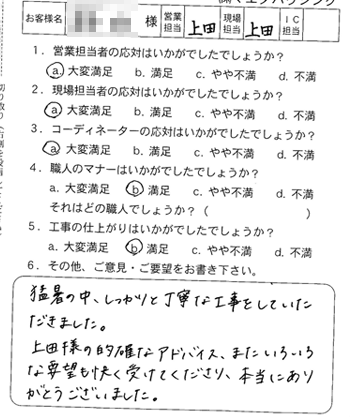 お客様名 様 営業担当 上田 現場担当 上田 IC担当
1. 営業担当者の応対はいかがでしたでしょうか?
a. 大変満足 b. 満足 c. やや不満 d. 不満
2. 現場担当者の応対はいかがでしたでしょうか?
a. 大変満足 b. 満足 c. やや不満 d. 不満
3. コーディネーターの応対はいかがでしたでしょうか?
a. 大変満足 b. 満足 c. やや不満 d. 不満
4. 職人のマナーはいかがでしたでしょうか?
a. 大変満足 b. 満足 c. やや不満 d. 不満
それはどの職人でしょうか?( )
5. 工事の仕上がりはいかがでしたでしょうか?
a. 大変満足 b. 満足 c. やや不満 d. 不満
6. その他、ご意見・ご要望をお書き下さい。
猛暑の中、しっかりと丁寧な工事をしていた
だきました。
上田様の的確なアドバイス、またいろいろ
な要望も快く受けてくださり、本当にあり
がとうございました。